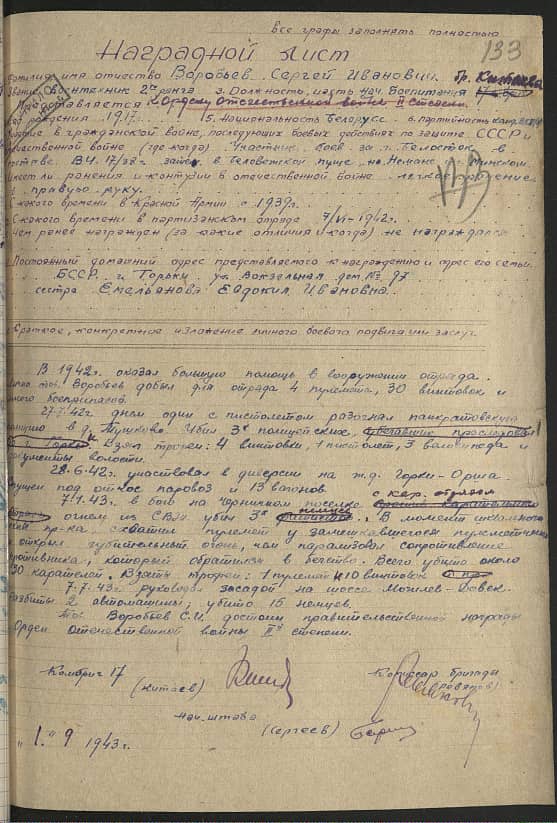 Все графы заполнять полностью
133
Наградной лист
Фамилия имя отчество Воробьев Сергей Иванович гр. Китаева
Звание техник 2го ранга 3. Должность, часть Нач. Воспитания
Представляется к Ордену Отечественной войны II степени
Год рождения 1917. 5. Национальность Белорус 6. партийность канд.
в гражданской войне, последующих боевых действиях по защите СССР и
отечественной войне (где когда). Участник боев за г. Белосток в
составе в Беловежской пуще, на Немане, Минском.
Имеет ли ранения и контузии в отечественной войне легкое ранение
в правую руку.
С какого времени в Красной Армии с 1939г.
С какого времени в партизанском отряде 7/VI-1942г.
Чем ранее награжден (за какие отличия и когда) не награждался
Постоянный домашний адрес представляемого к награждению и адрес его семьи
БССР г. Горки ул. Вокзальная дом № 97
сестра Емельянова Евдокия Ивановна.
Краткое, конкретное изложение личного боевого подвига или заслуг.
В 1942г. оказал большую помощь в вооружении отряда.
тов. Воробьев добыл для отряда 4 пулемета, 30 винтовок и
много боеприпасов.
27.7.42г. днем один с пистолетом разогнал панкратовскую
полицию в д. Убил 3х полицейских,
Взял трофеи: 4 винтовки, 1 пистолет, 3 велосипеда и
документы волости.
28.6.42. участвовал в диверсии на ж.д. Горки-Орша
спущен под откос паровоз и 13 вагонов.
с кар. отрядом
7.1.43. в бою на Черничном поселке
огнем из СВТ убил 3х немцев. В момент
пр-ка схватил пулемет у замешкавшегося пулеметчика
и открыл губительный огонь, чем парализовал сопротивление
противника, который обратился в бегство. Всего убито около
30 карателей. Взяты трофеи: 1 пулемет и 10 винтовок
7.7.43. руководил засадой на шоссе Могилев-Довск.
Разбиты 2 автомашины, убито 15 немцев.
Тов. Воробьев С.И. достоин правительственной награды
Орден отечественной войны IIй степени.
Комбриг 17 Комиссар бригады
(Китаев)
Нач. штаба
(Сергеев)
"1." 9 1943г.